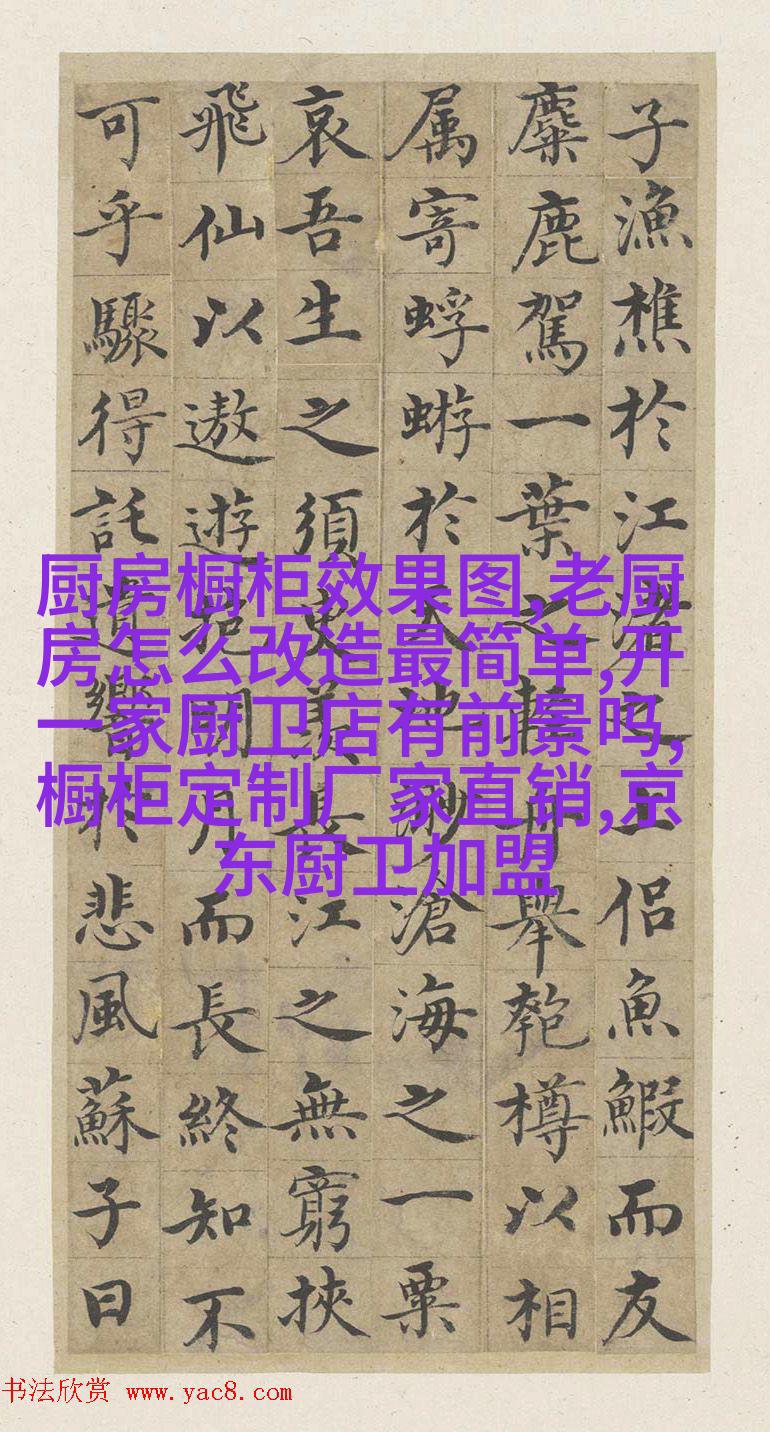 子漁樵於江渚之上侶魚鰕而友
麋鹿駕一葉之輕舟舉匏樽以相
属寄蜉蝣於天地渺滄海之一粟
哀吾生之須臾羨長江之無窮挾
飛仙以遨遊抱明月而長終知不
可乎驟得託遺響於悲風蘇子曰
厨房橱柜效果图,老厨
房怎么改造最简单,开
一家厨卫店有前景吗,
橱柜定制厂家直销,京
东厨卫加盟
书法欣赏 www.yac8.com